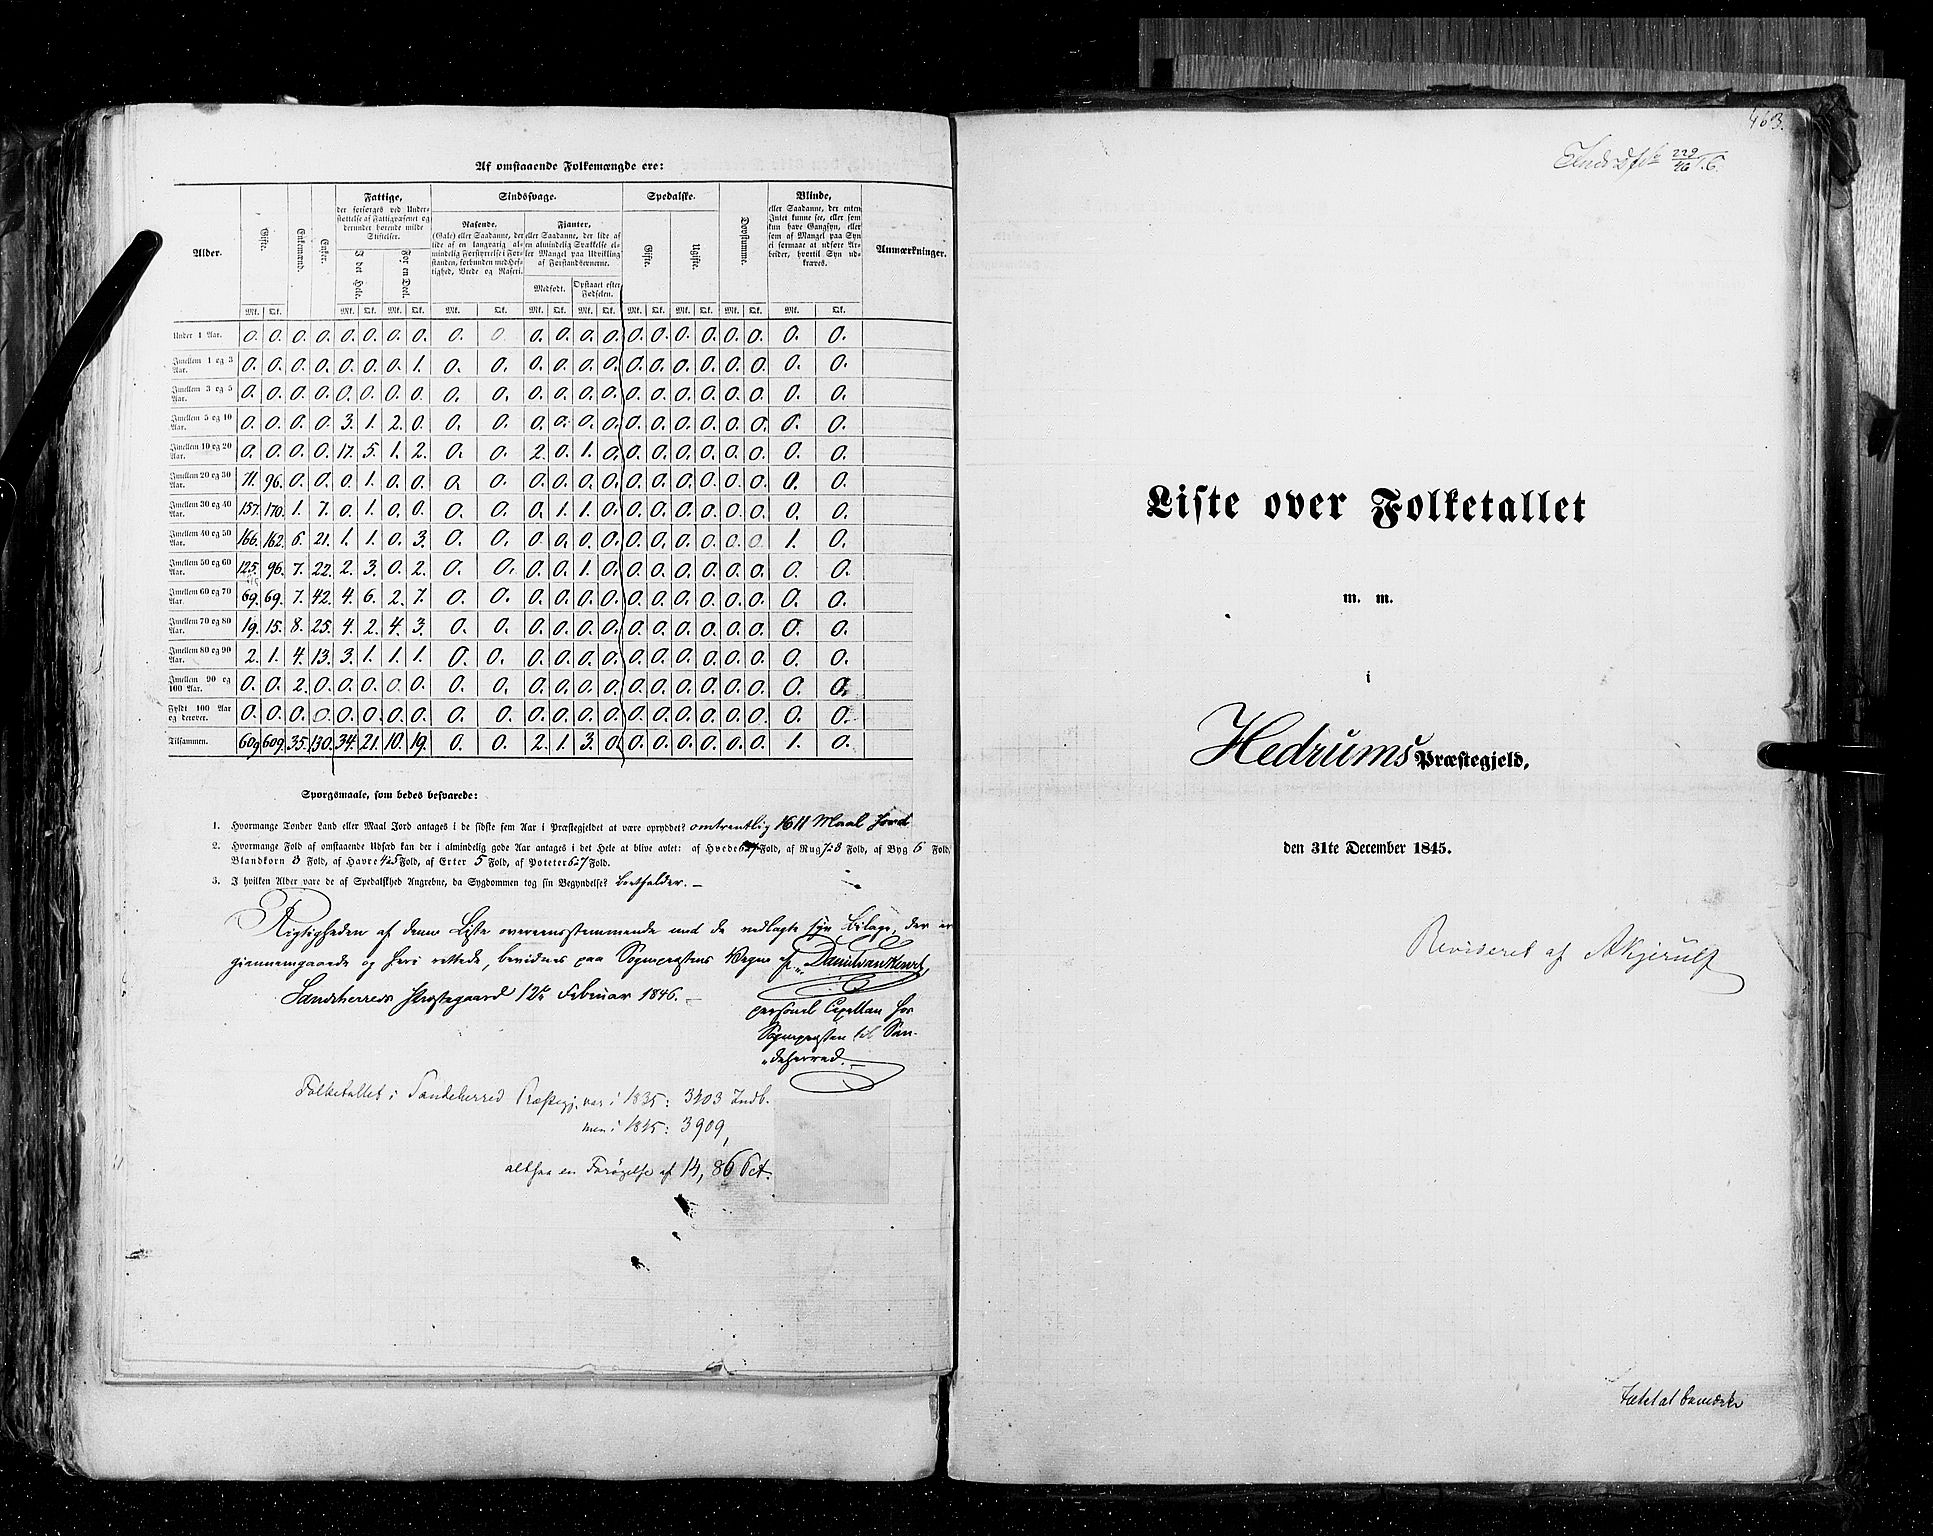 Af omstaaende Folkemængde ere:
Alder. Gifte. Enkemænd. Enker. Fattige, der forsørges ved Understøttelse af Fattigvæsenet og derunder hørende milde Stiftelser. I det Hele. For en Deel. Sindssvage. Rasende. (Gale) eller Saadanne, der lide af en langvarig almindelig Forstyrrelse i Forstanden, forbunden med Heftighed, Vrede og Raseri. Fjanter, eller Saadanne, der lide af en almindelig Svækkelse eller Mangel paa Udvikling af Forstandsevnerne. Medfødt. Opstaaet efter Fødselen. Spedalske. Gifte. Ugifte. Døvstumme. Blinde, eller Saadanne, der enten Intet kunne see, eller som kun have Gangsyn, eller som af Mangel paa Syn ei formaae at udføre Arbeider, hvortil Syn udkræves. Anmærkninger.
Mk. Qk. Mk. Qk. Mk. Qk. Mk. Qk. Mk. Qk. Mk. Qk. Mk. Qk. Mk. Qk. Mk. Qk. Mk. Qk.
Under 1 Aar. 0. 0. 0. 0. 0. 0. 0. 0. 0. 0. 0. 0. 0. 0. 0. 0. 0. 0. 0. 0. 0. 0.
Imellem 1 og 3 Aar. 0. 0. 0. 0. 0. 0. 0. 1. 0. 0. 0. 0. 0. 0. 0. 0. 0. 0. 0. 0. 0. 0.
Imellem 3 og 5 Aar. 0. 0. 0. 0. 0. 0. 0. 0. 0. 0. 0. 0. 0. 0. 0. 0. 0. 0. 0. 0. 0. 0.
Imellem 5 og 10 Aar. 0. 0. 0. 0. 3. 1. 2. 0. 0. 0. 0. 0. 0. 0. 0. 0. 0. 0. 0. 0. 0. 0.
Imellem 10 og 20 Aar. 0. 0. 0. 0. 17. 5. 1. 2. 0. 0. 2. 0. 1. 0. 0. 0. 0. 0. 0. 0. 0. 0.
Imellem 20 og 30 Aar. 71. 96. 0. 0. 0. 1. 0. 0. 0. 0. 0. 0. 0. 0. 0. 0. 0. 0. 0. 0. 0. 0.
Imellem 30 og 40 Aar. 157. 170. 1. 7. 0. 1. 0. 0. 0. 0. 0. 1. 1. 0. 0. 0. 0. 0. 0. 0. 0. 0.
Imellem 40 og 50 Aar. 166. 162. 6. 21. 1. 1. 0. 3. 0. 0. 0. 0. 0. 0. 0. 0. 0. 0. 0. 0. 1. 0.
Imellem 50 og 60 Aar. 125. 96. 7. 22. 2. 3. 0. 2. 0. 0. 0. 0. 1. 0. 0. 0. 0. 0. 0. 0. 0. 0.
Imellem 60 og 70 Aar. 69. 69. 7. 42. 4. 6. 2. 7. 0. 0. 0. 0. 0. 0. 0. 0. 0. 0. 0. 0. 0. 0.
Imellem 70 og 80 Aar. 19. 15. 8. 25. 4. 2. 4. 3. 0. 0. 0. 0. 0. 0. 0. 0. 0. 0. 0. 0. 0. 0.
Imellem 80 og 90 Aar. 2. 1. 4. 13. 3. 1. 1. 1. 0. 0. 0. 0. 0. 0. 0. 0. 0. 0. 0. 0. 0. 0.
Imellem 90 og 100 Aar. 0. 0. 2. 0. 0. 0. 0. 0. 0. 0. 0. 0. 0. 0. 0. 0. 0. 0. 0. 0. 0. 0.
Fyldt 100 Aar og derover. 0. 0. 0. 0. 0. 0. 0. 0. 0. 0. 0. 0. 0. 0. 0. 0. 0. 0. 0. 0. 0. 0.
Tilsammen. 609 609. 35. 130. 34. 21. 10. 19. 0. 0. 2. 1. 3. 0. 0. 0. 0. 0. 0. 0. 1. 0.
Spørgsmaale, som bedes besvarede:
1. Hvormange Tønder Land eller Maal Jord antages i de sidste fem Aar i Præstegjeldet at være opryddet? omtrentlig 1611 Maal Jord
2. Hvormange Fold af omstaaende Udsæd kan der i almindelig gode Aar antages i det Hele at blive avlet: af Hvede 6à7 Fold, af Rug 7à8 Fold, af Byg 6 Fold,
Blandkorn 8 Fold, af Havre 4à5 Fold, af Erter 5 Fold, af Poteter 6à7 Fold.
3. I hvilken Alder vare de af Spedalskhed Angrebne, da Sygdommen tog sin Begyndelse? bortfalder. –
Rigtigheden af denne Liste overeensstemmende med de vedlagte syv Bilage, der er
giennemgaaede og heri rettede, bevidnes paa Sognepræstens Vegne af
Sandeherreds Præstegaard 12te Februar 1846. –
personel Capellan hos
Sognepræsten til San-
deherred.
Folketallet i Sandeherred Præstegj. var i 1835: 3403 Indb.
men i 1845: 3909,
altsaa en Forøgelse af 14,86 Pct.
463.
229/46
Liste over Folketallet
m. m.
i
Hedrums Præstegjeld,
den 31te December 1845.
Revideret af AKjerulf